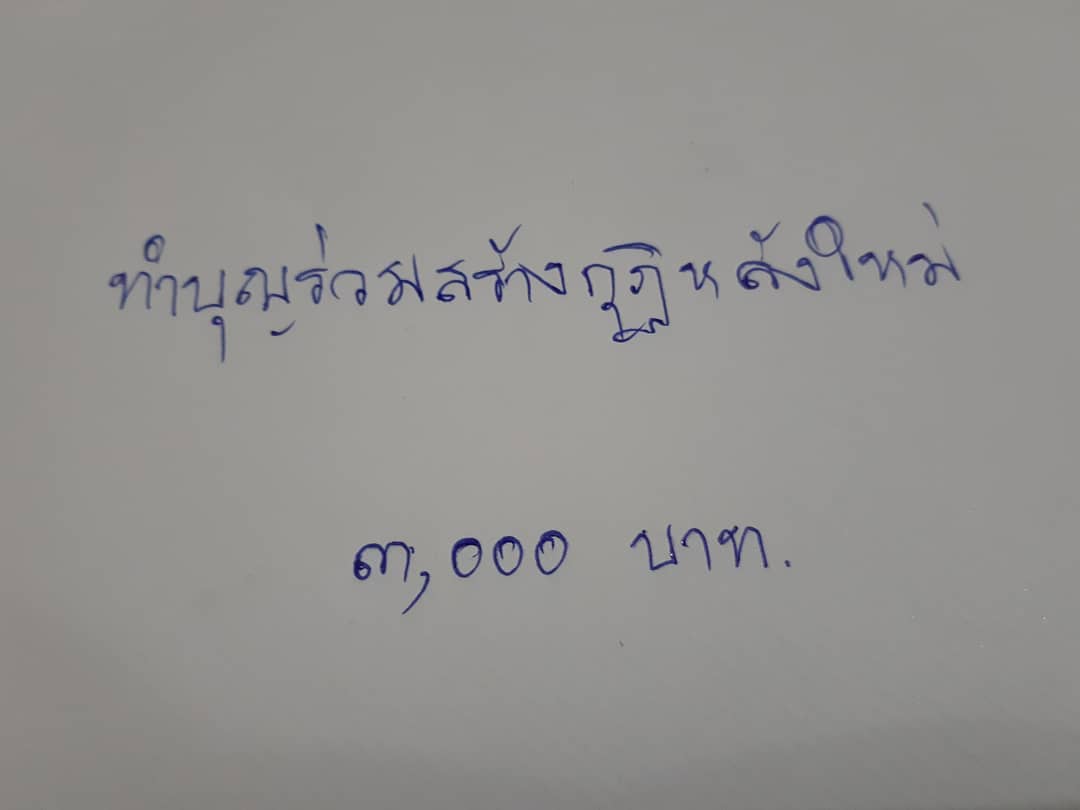 ทำบุญร่วมสร้างกุฏิหลังใหม่
๓,๐๐๐ บาท.